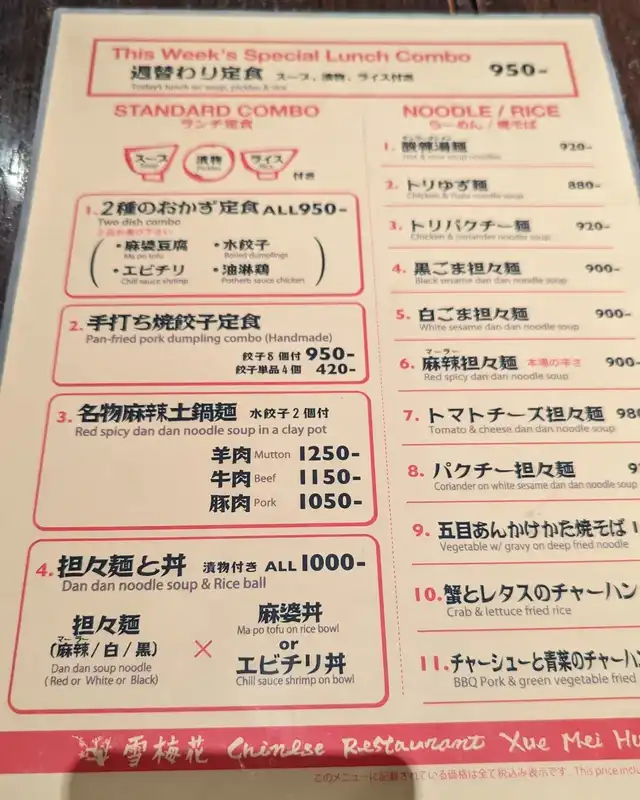 This Week's Special Lunch Combo
週替わり定食 スープ、漬物、ライス付き 950-
Today's lunch w/ soup, pickles & rice
STANDARD COMBO
ランチ定食
スープ 漬物 ライス 付き
Soup Pickles Rice
1. 2種のおかず定食 ALL950-
Two dish combo
・麻婆豆腐 ・水餃子
Ma po tofu Boiled dumplings
・エビチリ ・油淋鶏
Chill sauce shrimp Potherb sauce chicken
2. 手打ち焼餃子定食
Pan-fried pork dumpling combo (Handmade)
餃子8個付 950-
餃子単品4個 420-
3. 名物麻辣土鍋麺 水餃子2個付
Red spicy dan dan noodle soup in a clay pot
羊肉 Mutton 1250-
牛肉 Beef 1150-
豚肉 Pork 1050-
4. 担々麺と丼 漬物付き ALL 1000-
Dan dan noodle soup & Rice ball
担々麺
マーラー
(麻辣/白/黒)
Dan dan soup noodle
(Red or White or Black)
×
麻婆丼
Ma po tofu on rice bowl
or
エビチリ丼
Chill sauce shrimp on bowl
NOODLE / RICE
らーめん / 焼そば
1. 酸辣湯麺 920-
Hot & sour soup noodles
2. トリゆず麺 880-
Chicken & Yuzu noodle soup
3. トリパクチー麺 920-
Chicken & coriander noodle soup
4. 黒ごま担々麺 900-
Black sesame dan dan noodle soup
5. 白ごま担々麺 900-
White sesame dan dan noodle soup
マーラー
6. 麻辣担々麺 本場の辛さ 900-
Red spicy dan dan noodle soup
7. トマトチーズ担々麺 980
Tomato & cheese dan dan noodle soup
8. パクチー担々麺 9
Coriander on white sesame dan dan noodle soup
9. 五目あんかけかた焼そば 1
Vegetable w/ gravy on deep fried noodle
10. 蟹とレタスのチャーハン
Crab & lettuce fried rice
11. チャーシューと青菜のチャーハン
BBQ Pork & green vegetable fried
雪梅花 Chinese Restaurant Xue Mei Hu
このメニューに記載されている価格は全て税込み表示です。This price inclu